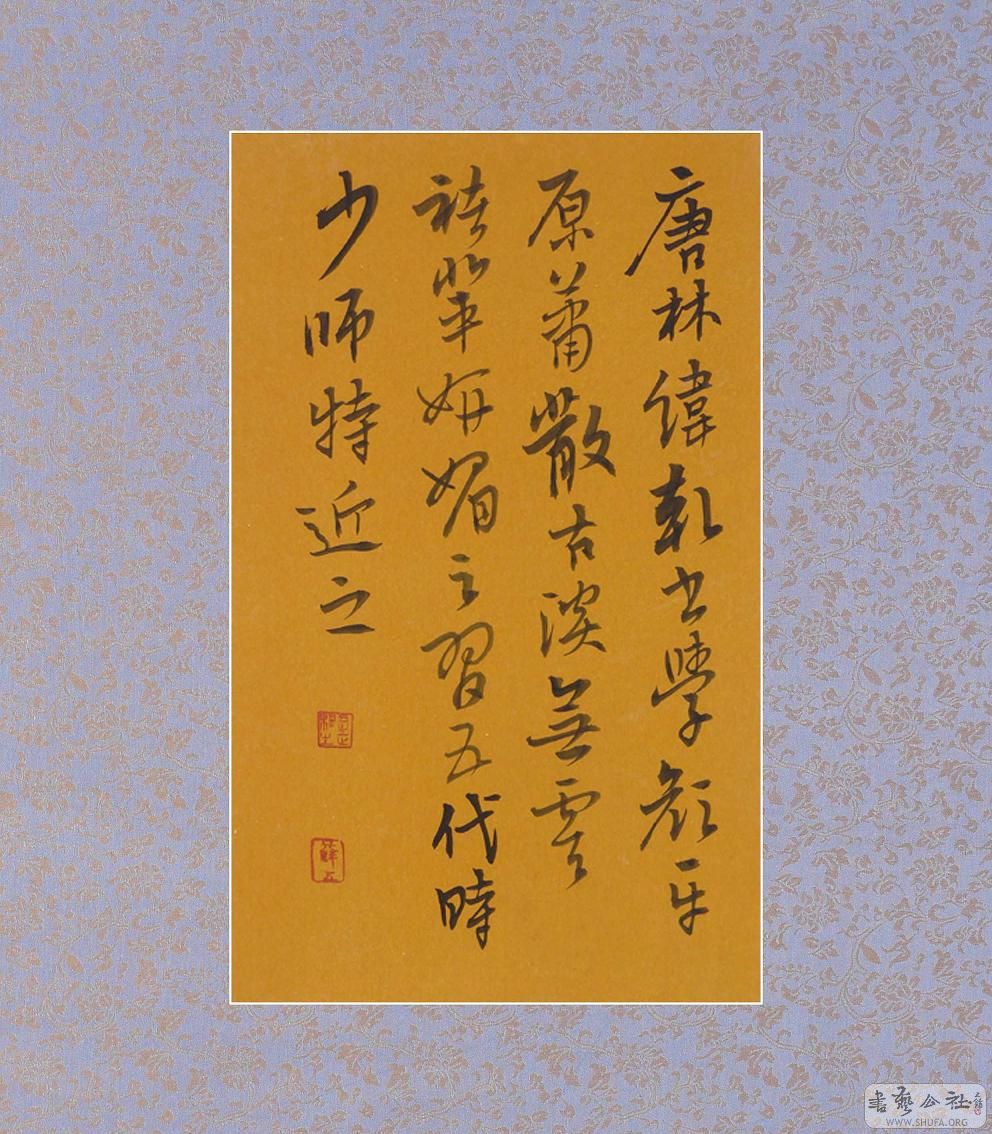 唐林緯乾書學顏平
原蕭散古淡無虞
褚輩妍媚之習五代時
少師特近之
書藝公社
WWW.SHUFA.ORG